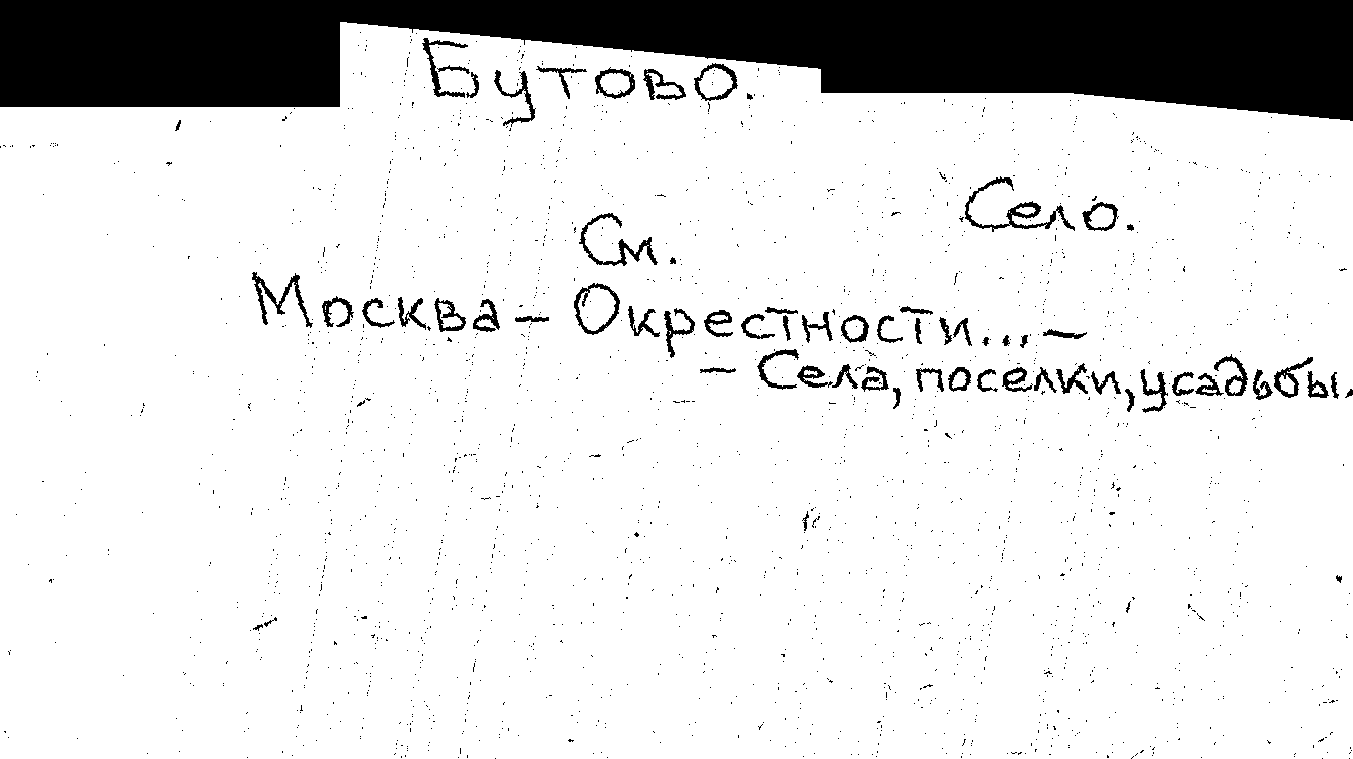 Бутово.
Село.
См.
Москва – Окрестности... –
– Села, поселки, усадьбы.